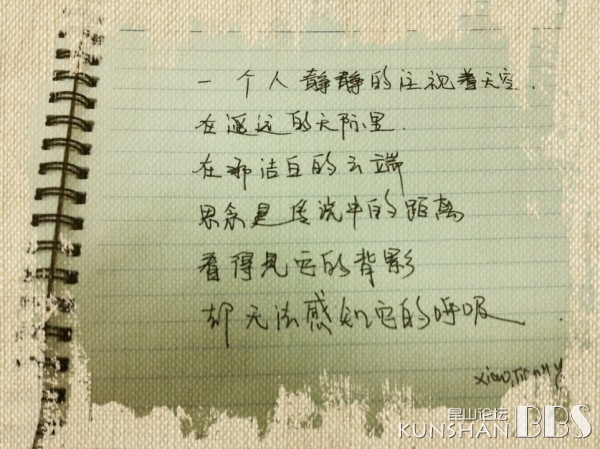 一个人静静的注视着天空.
在遥远的天际里.
在那洁白的云端
果余是传说中的距离
看得见它的背影
却无法感知它的呼吸
昆山论坛
KUNSHAN BBS